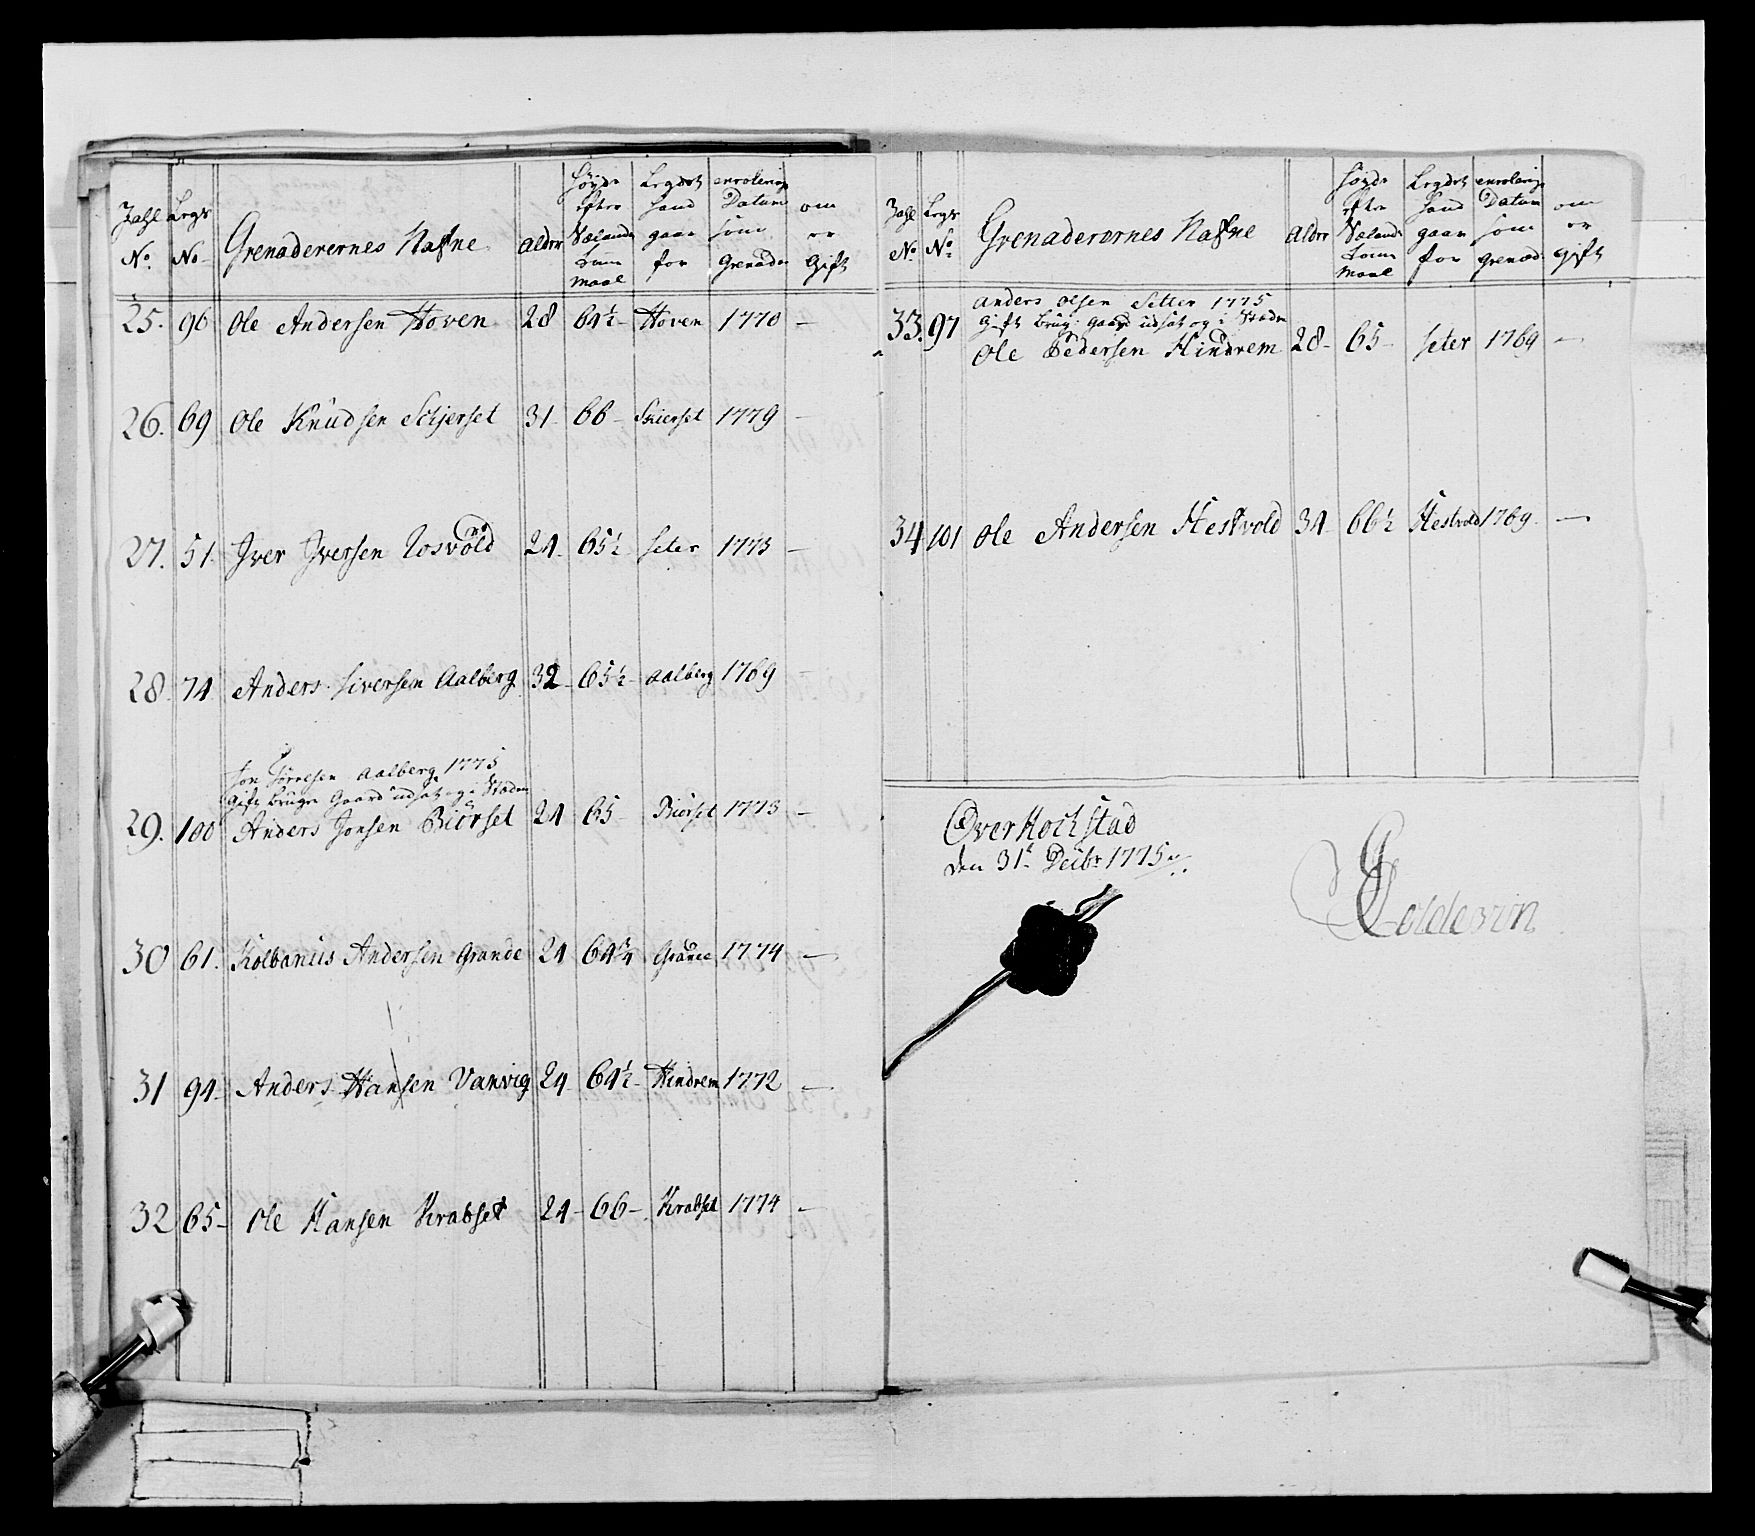 Zahl No. Legs No. Grenaderernes Nafne alder Høyde efter Sælands Kom maal Legdet hand gaar for enrolerings Datum som Grenader om er Gift
25. 96 Ole Andersen Hoven 28 64½ Hoven 1770 –
26. 69 Ole Knudsen Schjerset 31 66 – Skierset 1779 –
27. 51. Jver Jversen Rosvold 24 65½ Seter 1773 –
28. 74. Anders Siversen Aalberg 32 65½ Aalberg 1769 –
Aalberg 1775
gift bruger Gaard udsat og i Steden
29. 100 Anders Jonsen Biörset 24 65 Biörset 1773 –
30 61. Kolbanus Andersen Grande 24 64¾ Grande 1774 –
31 94 – Anders Hansen Vanvig 24 – 64½ Hindrem 1772 –
32 65 – Ole Hansen Krabset 24 – 66 – Krabset 1774 –
Zahl No. Legs No. Grenaderernes Nafne alder Høyde efter Sælands Kom maal Legdet hand gaar for enrolerings Datum som grenad om er gift
Anders Olsen Setter 1775
gift brug: gaard udsat og i Steden
33. 97 Ole Pedersen Hindrem 28 – 65 – Seter 1769 –
34 101 Ole Andersen Hestvold 34 66½ Hestvold 1769. –
Over Rochstad
den 31t Decbr 1775